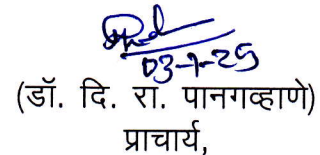 03-7-25
(डॉ. दि. रा. पानगव्हाणे)
प्राचार्य,